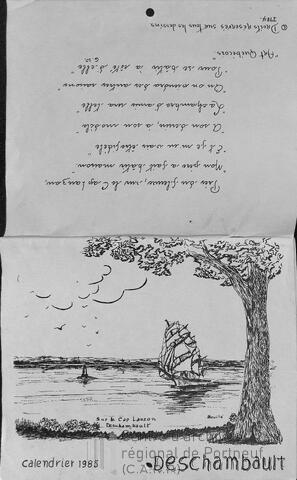 Près du fleuve, sur le Cap Lauzon,
"Mon père a fait bâtir maison"
"Et je m'en vais
"A son dessin, à son modèle"
"La chambre d'amis sera belle"
"On en viendra des
"Pour se bâtir à côté d'elle"
"Art Québécois"
© Droits réservés sur tous les dessins
1984
Sur le Cap Lauzon
Deschambault
Centre d'archives
régional de Portneuf
(C.A.R.P.)
Calendrier 1985
Deschambault